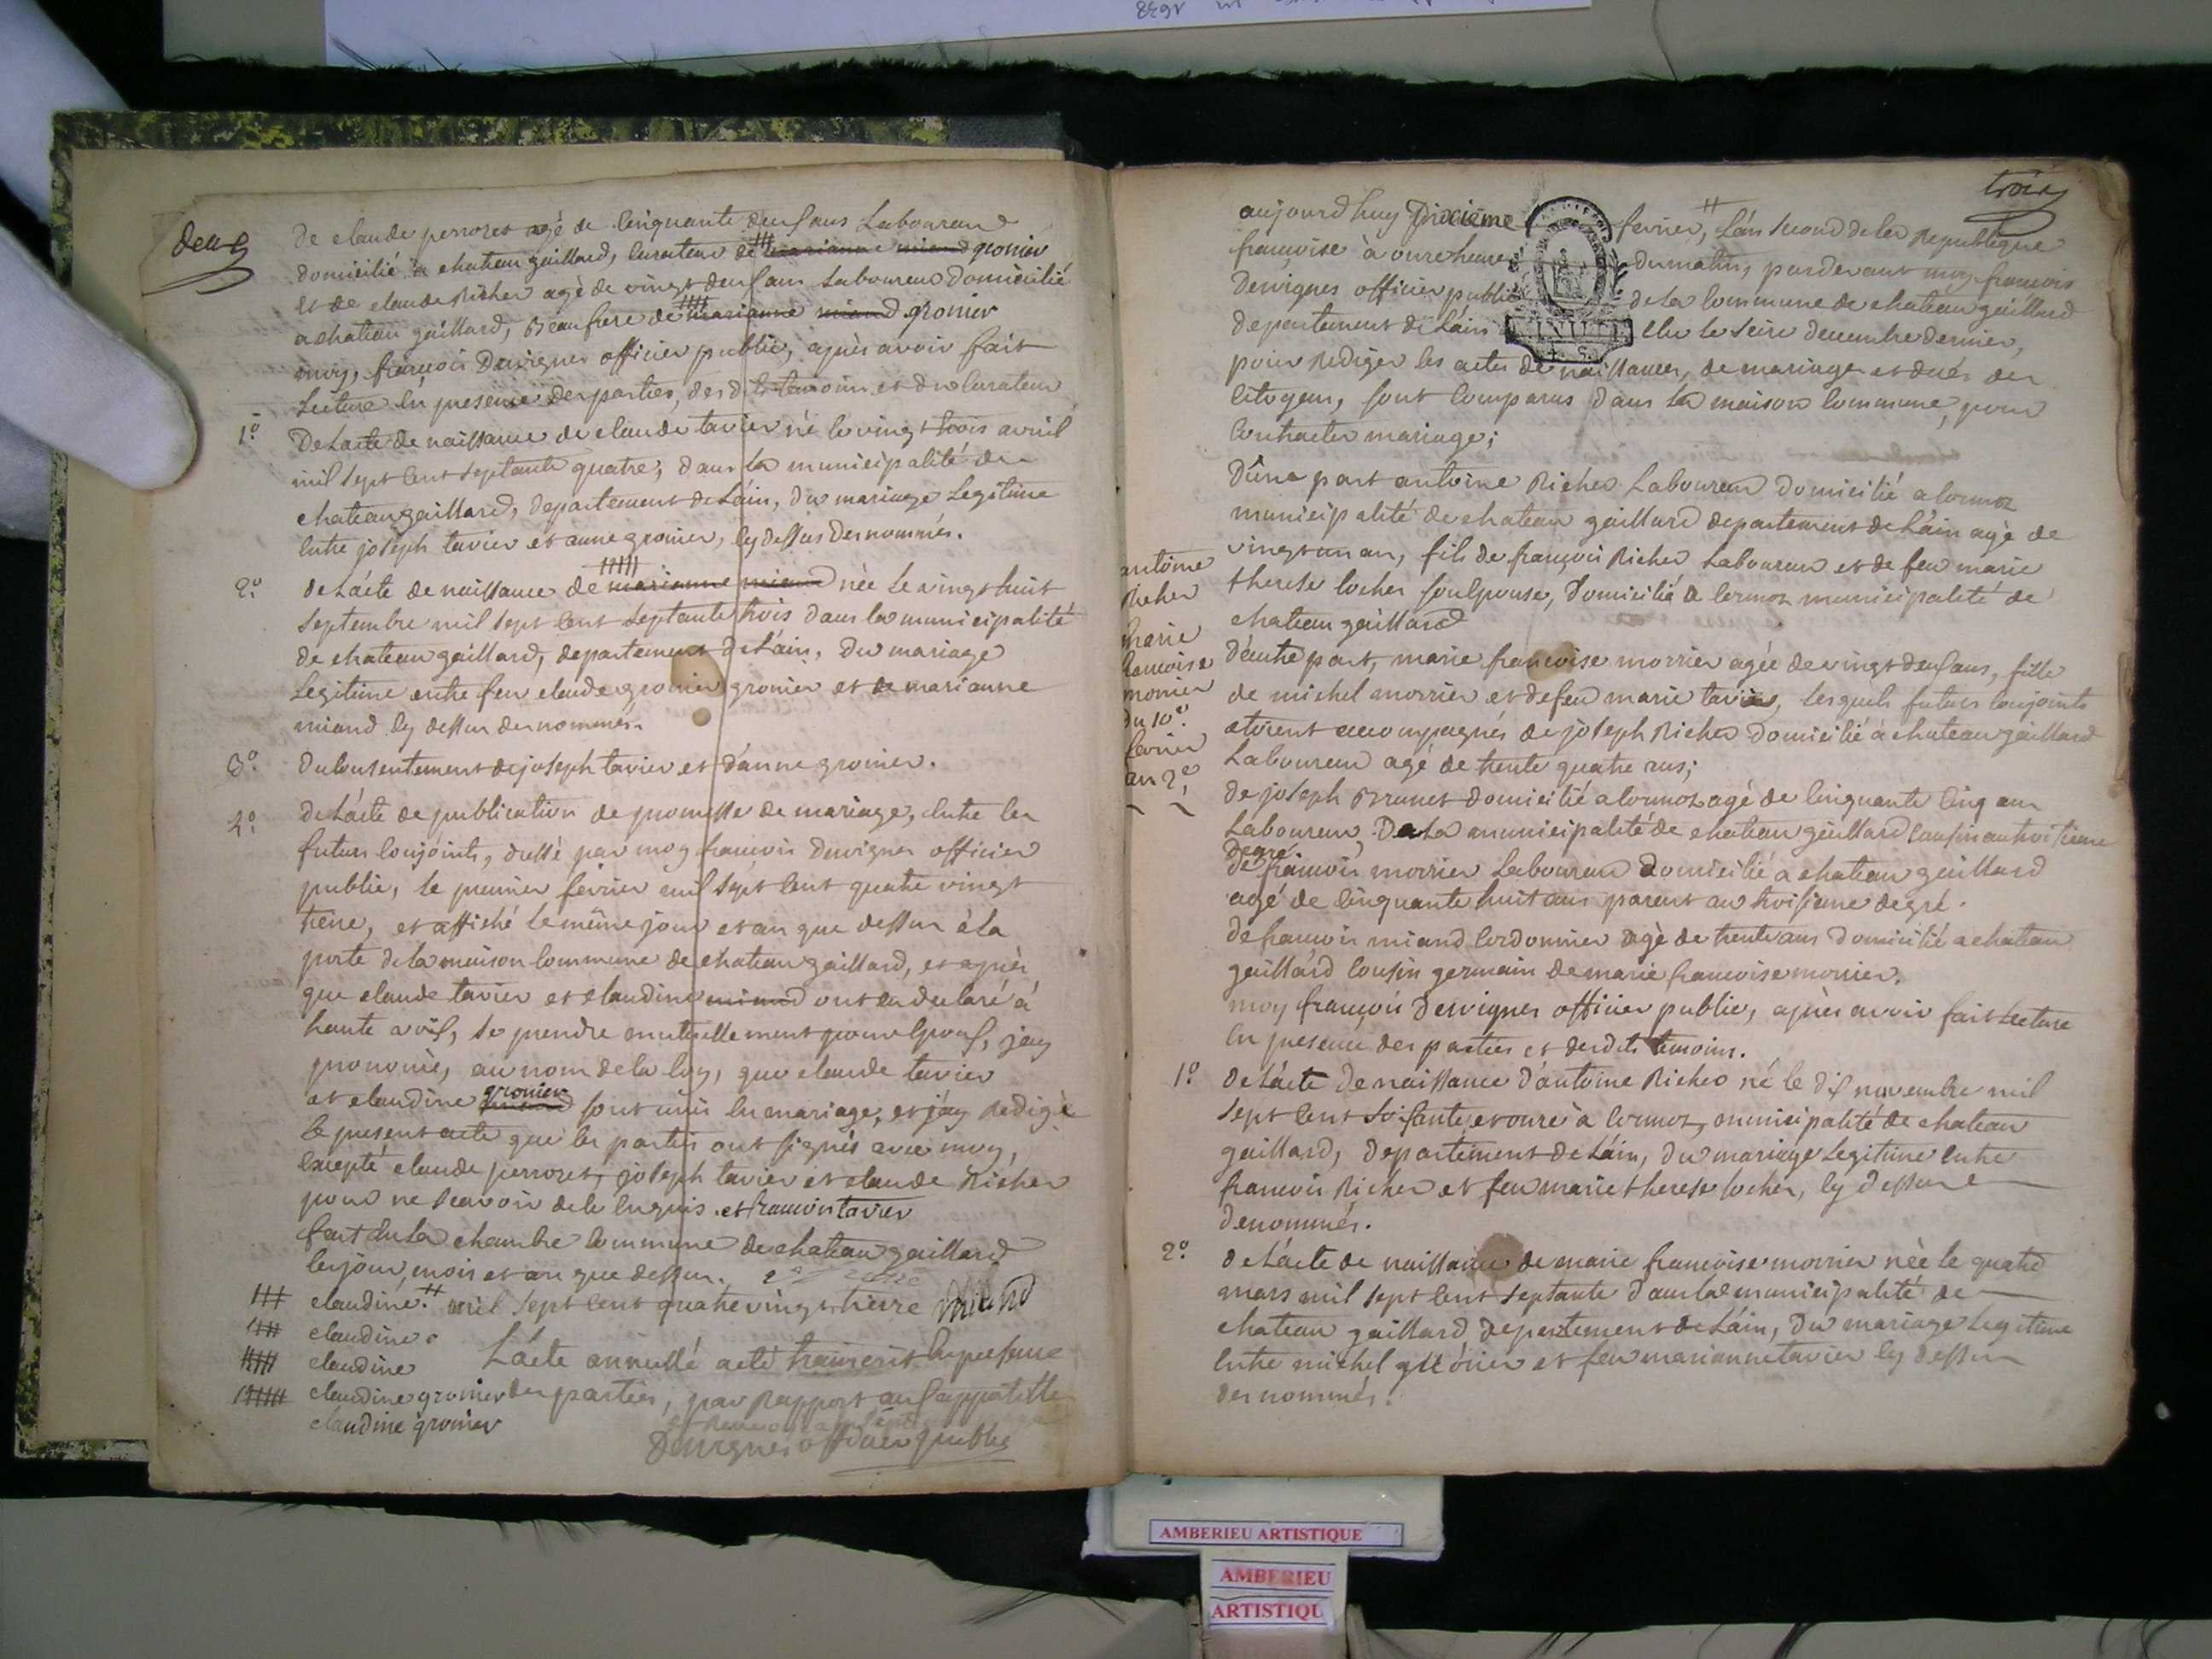 deux
de claude perrozet agé de cinquante deux ans Laboureur
domicilié a chateau gaillard, curateur de marianne miand gronier
et de claude Richer agé de vingt deux ans Laboureur domicilié
a chateau gaillard, Beaufrere de marianne miand gronier
moy, françois Desvignes officier public, après avoir fait
Lecture en presence des parties, des dits temoins et du curateur
1º De Lacte de naissance de claude tavier né le vingt trois avril
mil sept cent septante quatre, dans la municipalité de
chateau gaillard, departement de L'ain, du mariage Legitime
entre joseph tavier et anne gronier, cy dessus denommés.
2º de L'acte de naissance de marianne miand née Le vingt huit
septembre mil sept cent septante trois dans la municipalité
de chateau gaillard, departement de L'ain, du mariage
Legitime entre feu claude gronier gronier et de marianne
miand cy dessus denommés.
3º Du consentement de joseph tavier et d'anne gronier.
4º de L'acte de publication de promesse de mariage, entre les
futurs conjoints, dressé par moy françois desvignes officier
public, le premier fevrier mil sept cent quatre vingt
treize, et affiché le même jour et an que dessus à la
porte de la maison commune de chateau gaillard, et après
que claude tavier et claudine miand ont eu declaré à
haute voix, se prendre mutuellement pour epoux, j'ay
prononcé, au nom de la loy, que claude tavier
et claudine gronier sont unis en mariage, et j'ay Redigé
le present acte que les parties ont signés avec moy,
excepté claude perrozet, joseph tavier et claude Richer
pour ne scavoir de ce enquis. et francois tavier
fait en La chambre commune de chateau gaillard
les jour, mois et an que dessus.
claudine. mil sept cent quatre vingt treize miand
claudine
claudine L'acte annullé acté transcrit en presence
claudine gronier des parties, par Rapport aux
claudine gronier
Desvignes officier public
trois
aujourd'huy Dixieme fevrier, L'an second de la Republique
françoise à onze heures du matin, pardevant moy françois
Desvignes officier public de la commune de chateau gaillard
departement de L'ain elu le seize decembre dernier,
pour Rediger les actes de naissances, de mariages et deces des
citoyens, sont comparus dans La maison commune, pour
contracter mariage;
D'une part antoine Richer Laboureur domicilié a cormoz
municipalité de chateau gaillard departement de L'ain agé de
vingt un an, fils de françois Richer Laboureur et de feu marie
therese locher son epouse, Domicilié a cormoz municipalité de
chateau gaillard
D'autre part, marie francoise morrier agée de vingt deux ans, fille
de michel morrier et de feu marie tavier, lesquels futurs conjoints
etoient accompagnés de joseph Richer Domicilié à chateau gaillard
Laboureur agé de trente quatre ans;
de joseph Brunet domicilié a cormoz agé de cinquante cinq ans
Laboureur, De La municipalité de chateau gaillard cousin au troisieme
degré
de francois morrier Laboureur domicilié a chateau gaillard
agé de cinquante huit ans parent au troisieme degré.
de francois miand cordonnier agé de trente ans domicilié a chateau
gaillard cousin germain de marie francoise morrier.
moy françois desvignes officier public, après avoir fait Lecture
en presence des parties et desdits temoins.
antoine
Richer
marie
francoise
morrier
du 10e.
fevrier
an 2e.
1º de L'acte de naissance d'antoine Richer né le dix novembre mil
sept cent soixante et onze à cormoz, municipalité de chateau
gaillard, departement de L'ain, du mariage Legitime entre
francois Richer et feu marie therese locher, cy dessus
denommés.
2º de L'acte de naissance de marie francoise morrier née le quatre
mars mil sept cent septante dans la municipalité de
chateau gaillard, departement de L'ain, du mariage Legitime
entre michel morrier et feu marianne tavier cy dessus
denommés.
AMBERIEU ARTISTIQUE
AMBERIEU
ARTISTIQU